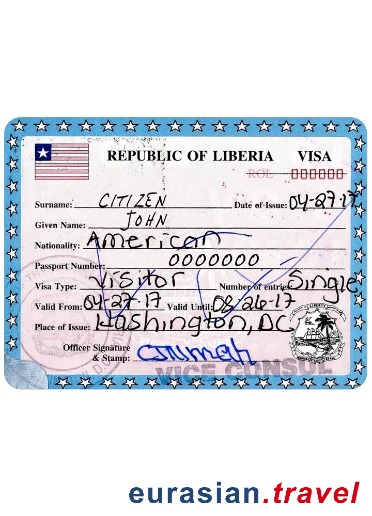 REPUBLIC OF LIBERIA VISA
ROL 000000
Surname: CITIZEN Date of Issue: 04-27-17
Given Name: JOHN
Nationality: American
Passport Number: 0000000
Visa Type: Visitor Number of entries: Single
Valid From: 04-27-17 Valid Until: 08-26-17
Place of Issue: Washington, DC
Officer Signature
& Stamp:
VICE CONSUL
eurasian.travel